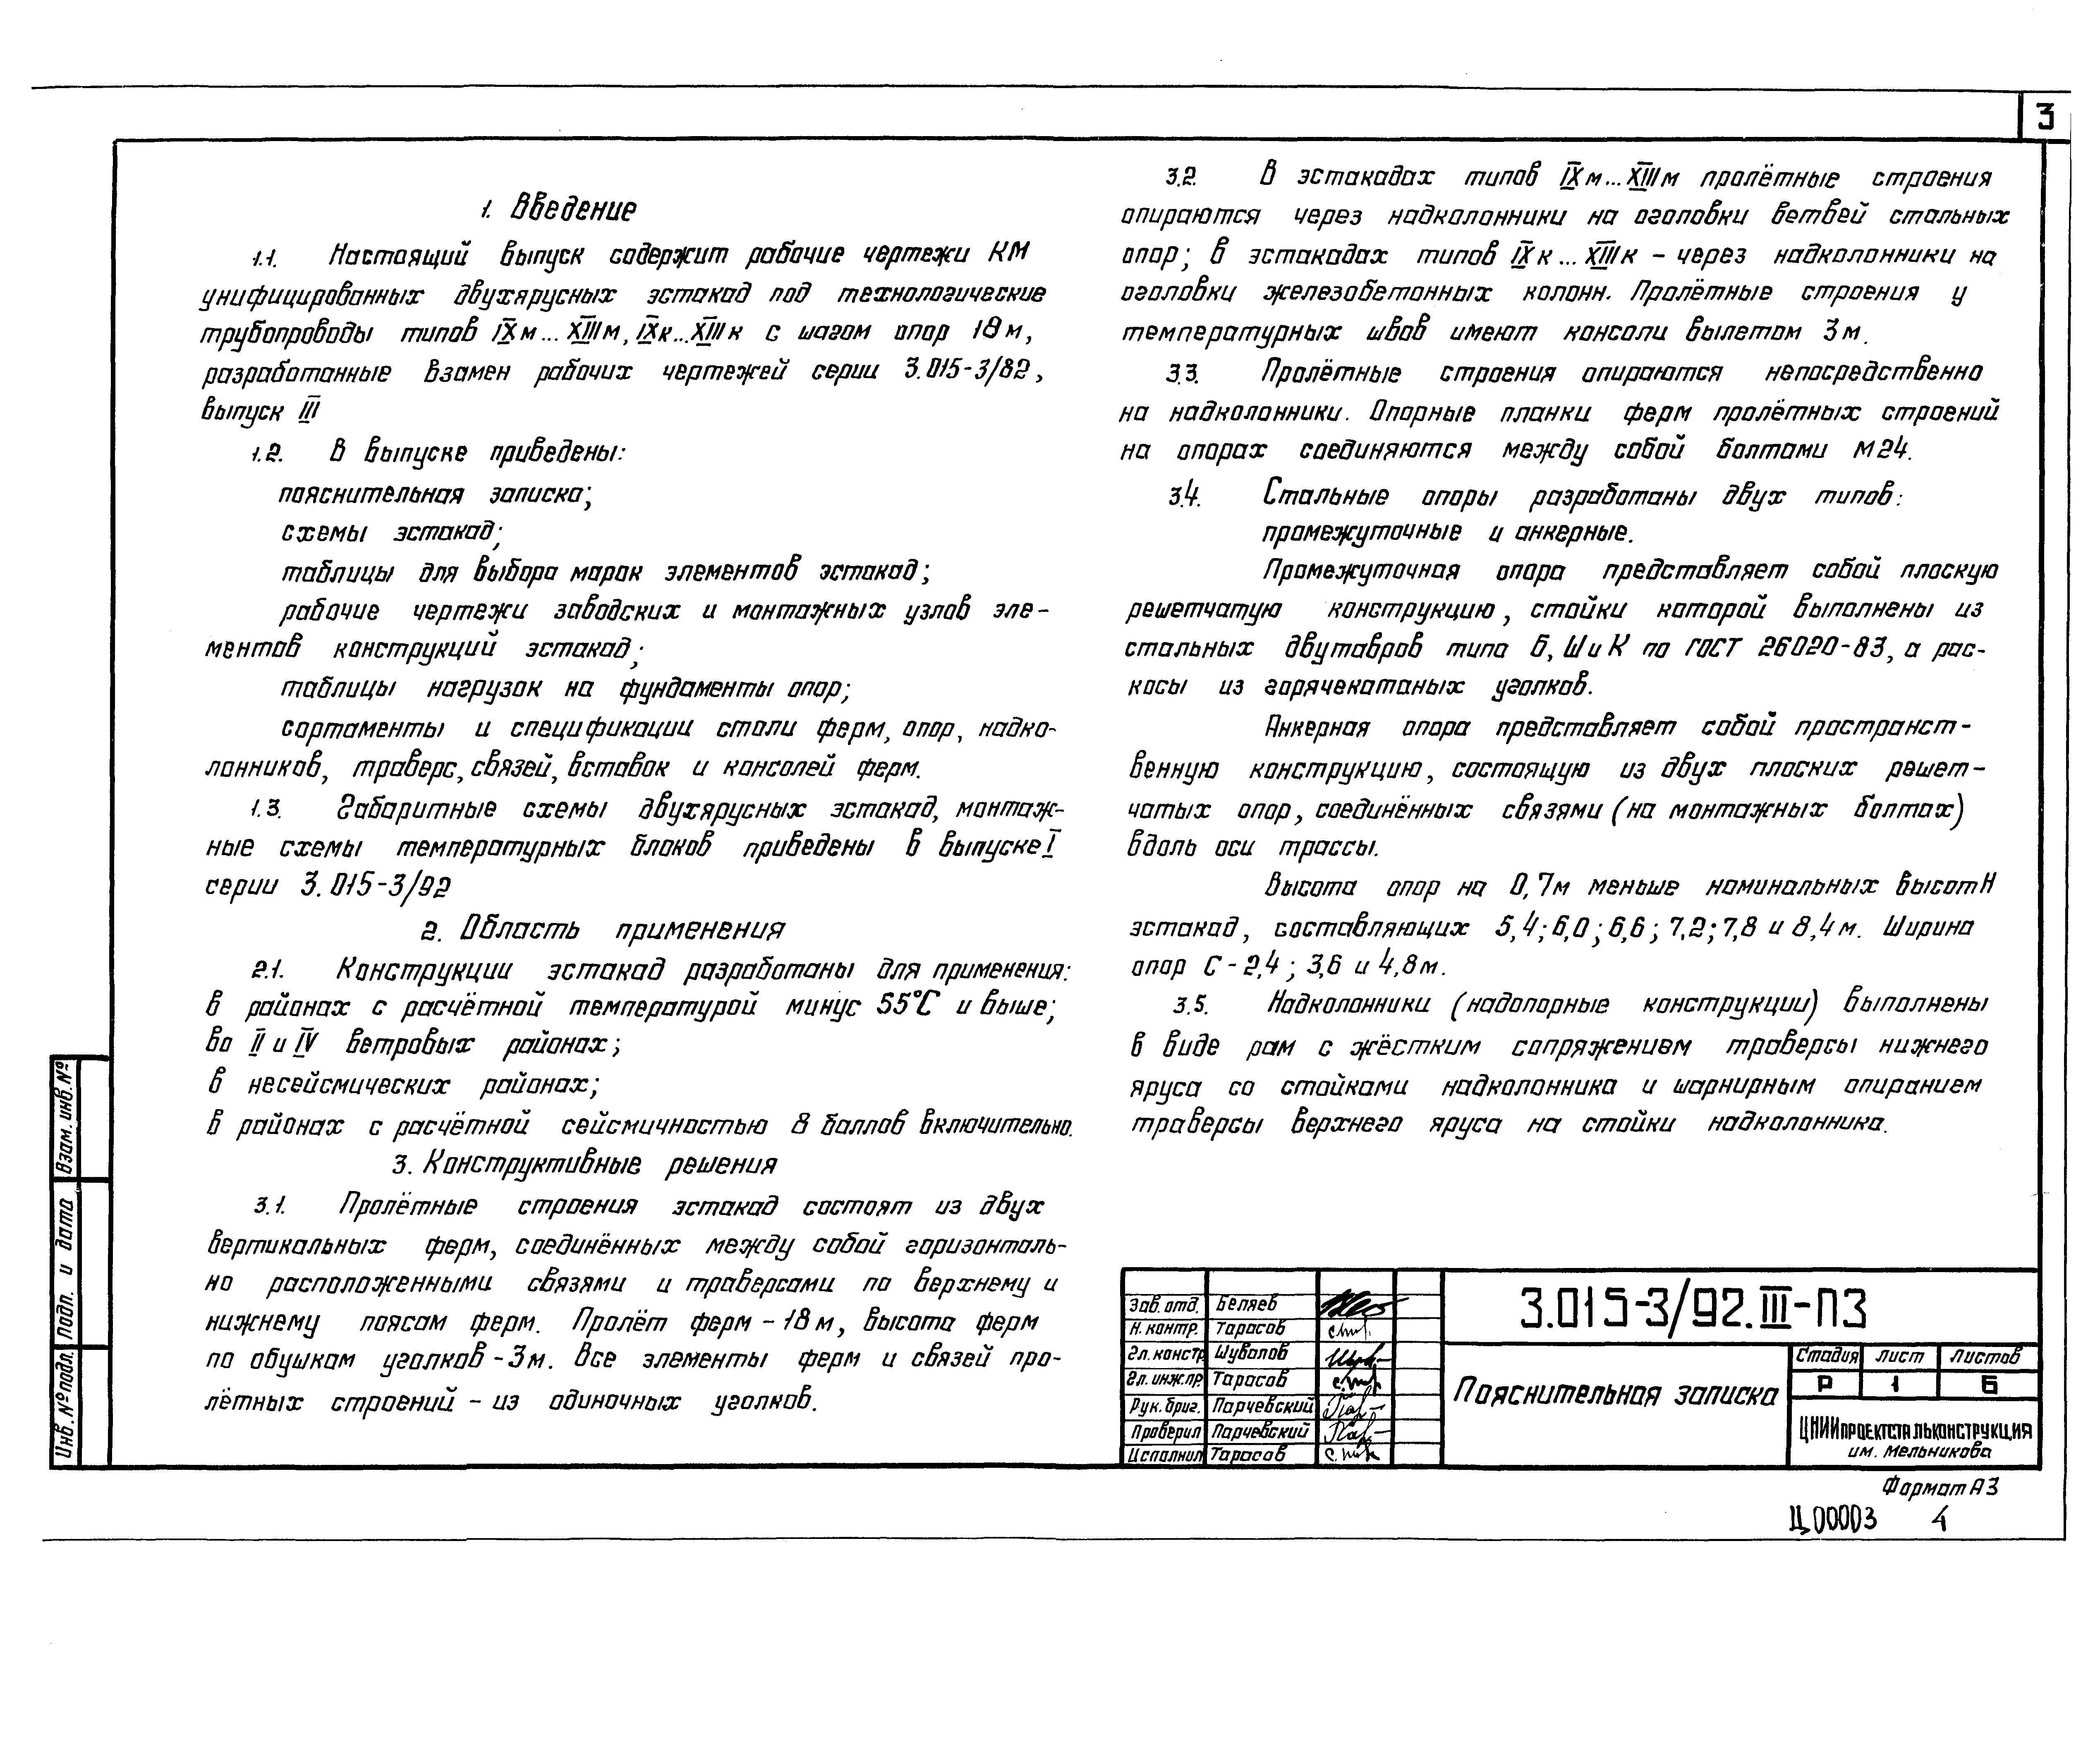 3
1. Введение
1.1. Настоящий выпуск содержит рабочие чертежи КМ
унифицированных двухярусных эстакад под технологические
трубопроводы типов IXм...XIIIм, IXк...XIIIк с шагом опор 18м,
разработанные взамен рабочих чертежей серии 3.015-3/82,
выпуск III
1.2. В выпуске приведены:
пояснительная записка;
схемы эстакад;
таблицы для выбора марок элементов эстакад;
рабочие чертежи заводских и монтажных узлов эле-
ментов конструкций эстакад;
таблицы нагрузок на фундаменты опор;
сортаменты и спецификации стали ферм, опор, надко-
лонников, траверс, связей, вставок и консолей ферм.
1.3. Габаритные схемы двухярусных эстакад, монтаж-
ные схемы температурных блоков приведены в выпуске I
серии 3.015-3/92
2. Область применения
2.1. Конструкции эстакад разработаны для применения:
в районах с расчётной температурой минус 55°С и выше;
во II и IV ветровых районах;
в несейсмических районах;
в районах с расчётной сейсмичностью 8 баллов включительно.
3. Конструктивные решения
3.1. Пролётные строения эстакад состоят из двух
вертикальных ферм, соединённых между собой горизонталь-
но расположенными связями и траверсами по верхнему и
нижнему поясам ферм. Пролёт ферм - 18м, высота ферм
по обушкам уголков - 3м. Все элементы ферм и связей про-
лётных строений - из одиночных уголков.
3.2. В эстакадах типов IXм...XIIIм пролётные строения
опираются через надколонники на оголовки ветвей стальных
опор; в эстакадах типов IXк...XIIIк - через надколонники на
оголовки железобетонных колонн. Пролётные строения у
температурных швов имеют консоли вылетом 3м.
3.3. Пролётные строения опираются непосредственно
на надколонники. Опорные планки ферм пролётных строений
на опорах соединяются между собой болтами М24.
3.4. Стальные опоры разработаны двух типов:
промежуточные и анкерные.
Промежуточная опора представляет собой плоскую
решетчатую конструкцию, стойки которой выполнены из
стальных двутавров типа Б, Ш и К по ГОСТ 26020-83, а рас-
косы из горячекатаных уголков.
Анкерная опора представляет собой пространст-
венную конструкцию, состоящую из двух плоских решет-
чатых опор, соединённых связями (на монтажных болтах)
вдоль оси трассы.
Высота опор на 0,7м меньше номинальных высот Н
эстакад, составляющих 5,4; 6,0; 6,6; 7,2; 7,8 и 8,4м. Ширина
опор С - 2,4; 3,6 и 4,8м.
3.5. Надколонники (надопорные конструкции) выполнены
в виде рам с жёстким сопряжением траверсы нижнего
яруса со стойками надколонника и шарнирным опиранием
траверсы верхнего яруса на стойки надколонника.
Взам. инв. №
Подп. и дата
Инв. № подл.
Зав. отд. Беляев
Н. контр. Тарасов
Гл. констр Шувалов
Гл. инж. пр. Тарасов
Рук. бриг. Парчевский
Проверил Парчевский
Исполнил Тарасов
3.015-3/92.III-ПЗ
Пояснительная записка
Стадия Лист Листов
Р 1 6
ЦНИИпроектстальконструкция
им. Мельникова
Формат А3
Ц00003 4